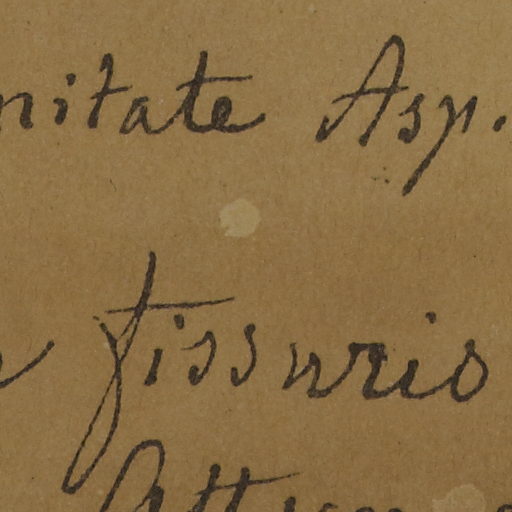 nitate Asp.
fissuris